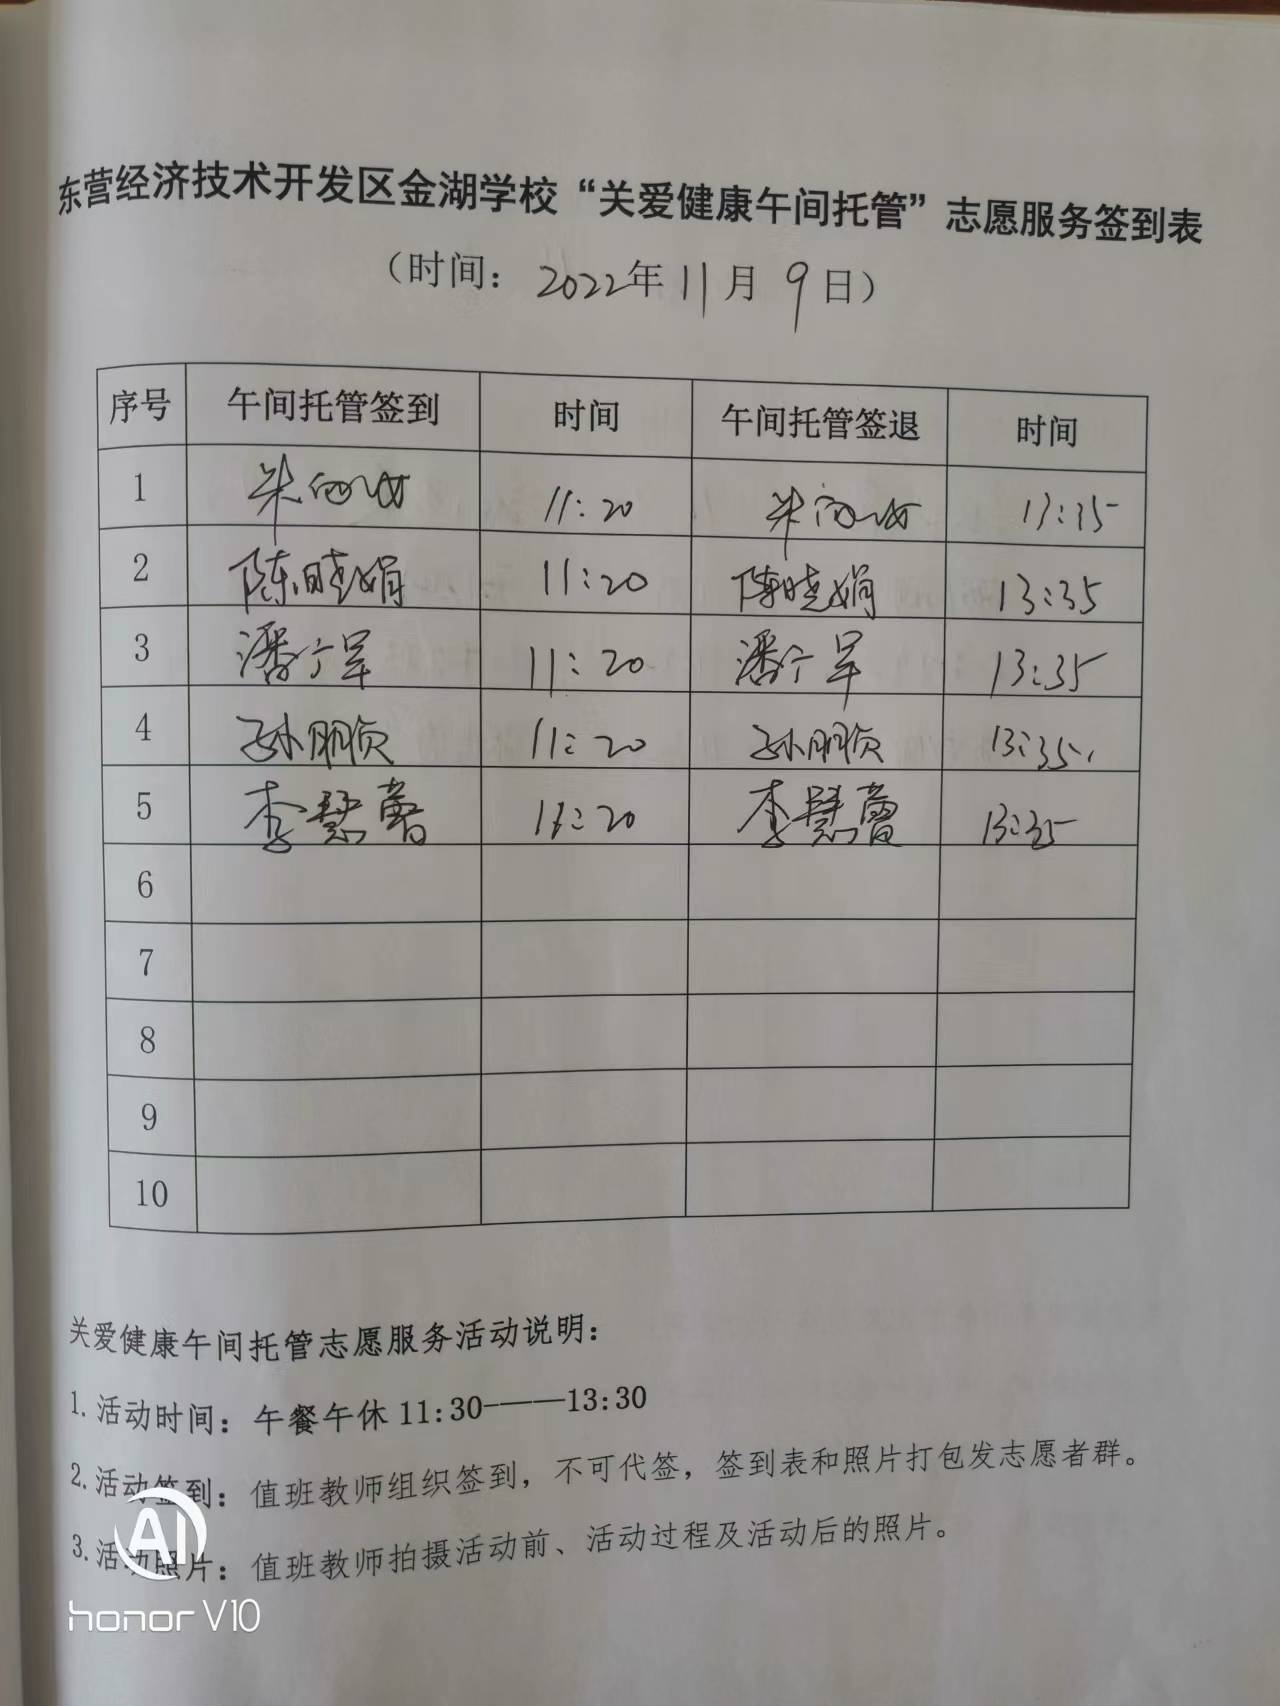 东营经济技术开发区金湖学校“关爱健康午间托管”志愿服务签到表
（时间：2022年11月9日）
序号 午间托管签到 时间 午间托管签退 时间
1 11:20 13:35
2 陈晓娟 11:20 陈晓娟 13:35
3 潘宁军 11:20 潘宁军 13:35
4 孙朋贞 11:20 孙朋贞 13:35
5 李慧蕾 11:20 李慧蕾 13:35
6
7
8
9
10
关爱健康午间托管志愿服务活动说明：
1.活动时间：午餐午休11:30-——13:30
2.活动签到：值班教师组织签到，不可代签，签到表和照片打包发志愿者群。
3.活动照片：值班教师拍摄活动前、活动过程及活动后的照片。
AI
honor V10